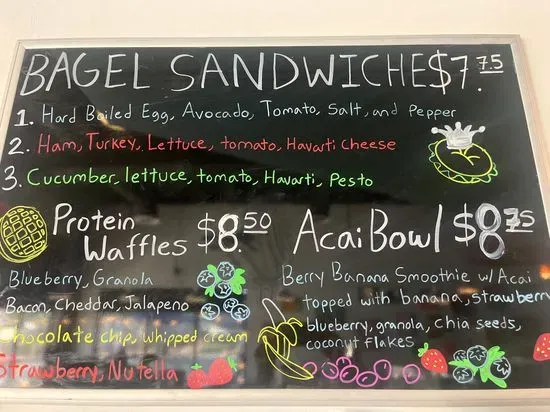 BAGEL SANDWICHE$7.75
1. Hard Boiled Egg, Avocado, Tomato, Salt, and Pepper
2. Ham, Turkey, Lettuce, tomato, Havarti Cheese
3. Cucumber, lettuce, tomato, Havarti, Pesto
Protein
Waffles $8.50
Blueberry, Granola
Bacon, Cheddar, Jalapeno
Chocolate chip, whipped cream
Strawberry, Nutella
Acai Bowl $8.75
Berry Banana Smoothie w/ Acai
topped with banana, strawberry
blueberry, granola, Chia seeds,
coconut flakes